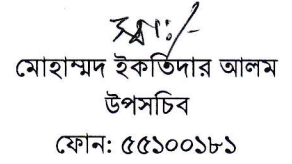 স্বা:/-
মোহাম্মদ ইকতিদার আলম
উপসচিব
ফোন: ৫৫১০০১৮১